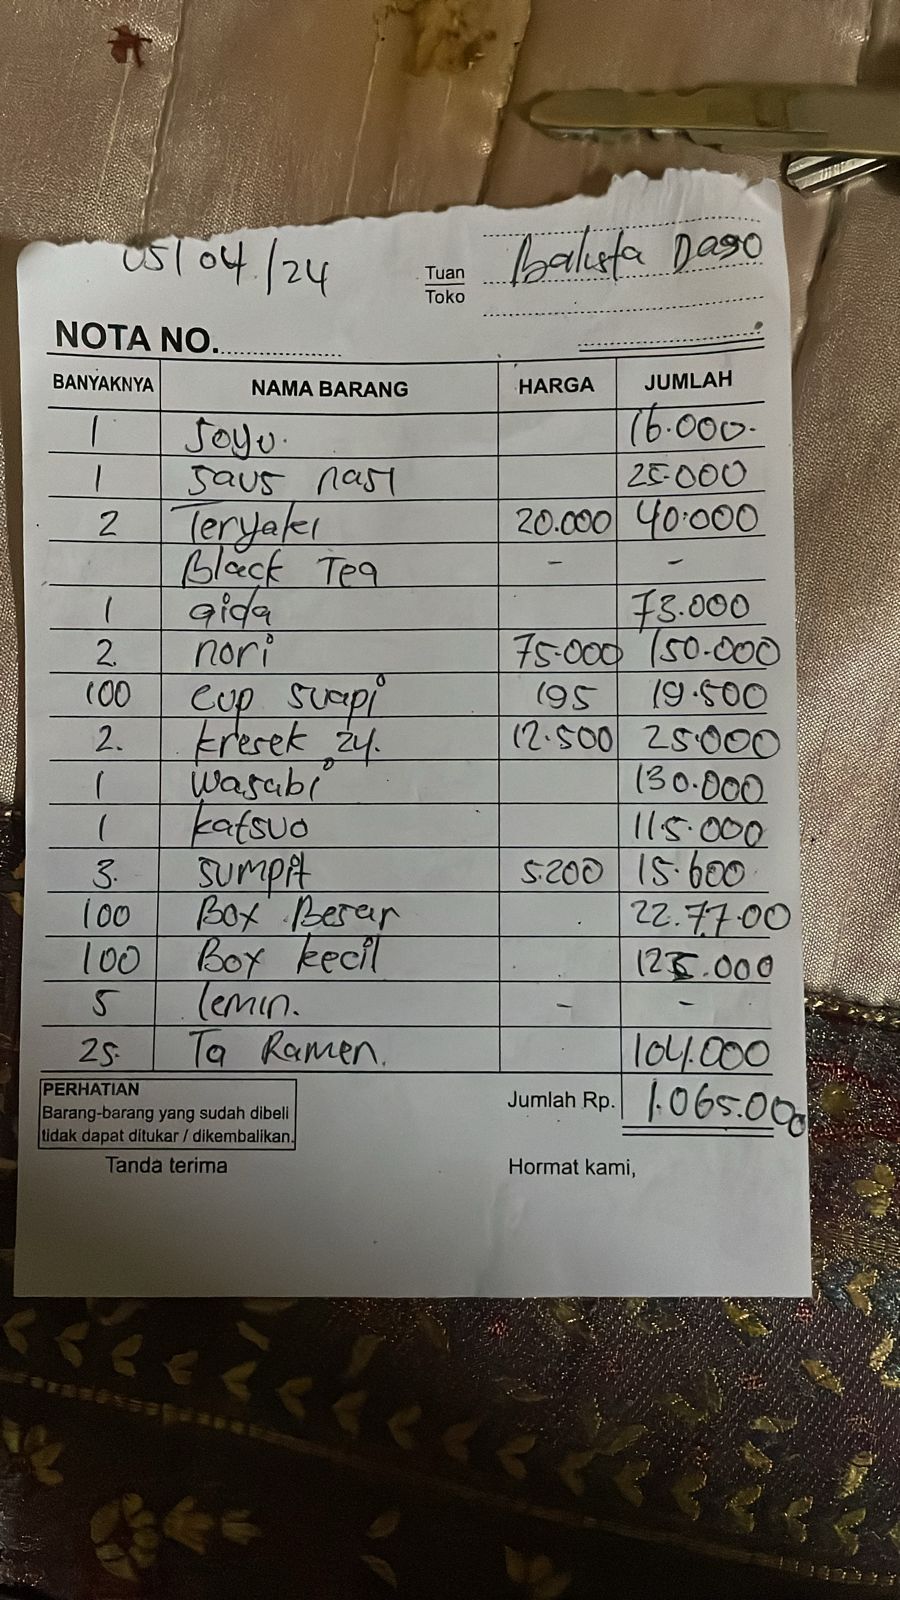 05/04/24
Tuan
Toko
Balista Dago
NOTA NO.
BANYAKNYA NAMA BARANG HARGA JUMLAH
1 Soyu. 16.000.-
1 Saus nasi 25.000
2 Teryaki 20.000 40.000
Black Tea - -
1 aida 73.000
2. nori 75.000 150.000
100 cup suapi 195 19.500
2. kresek 24. 12.500 25.000
1 wasabi 130.000
1 katsuo 115.000
3. sumpit 5.200 15.600
100 Box Besar 22.77.00
100 Box kecil 125.000
5 lemin. - -
25. Ta Ramen. 104.000
PERHATIAN
Barang-barang yang sudah dibeli
tidak dapat ditukar / dikembalikan.
Jumlah Rp. 1.065.000
Tanda terima Hormat kami,